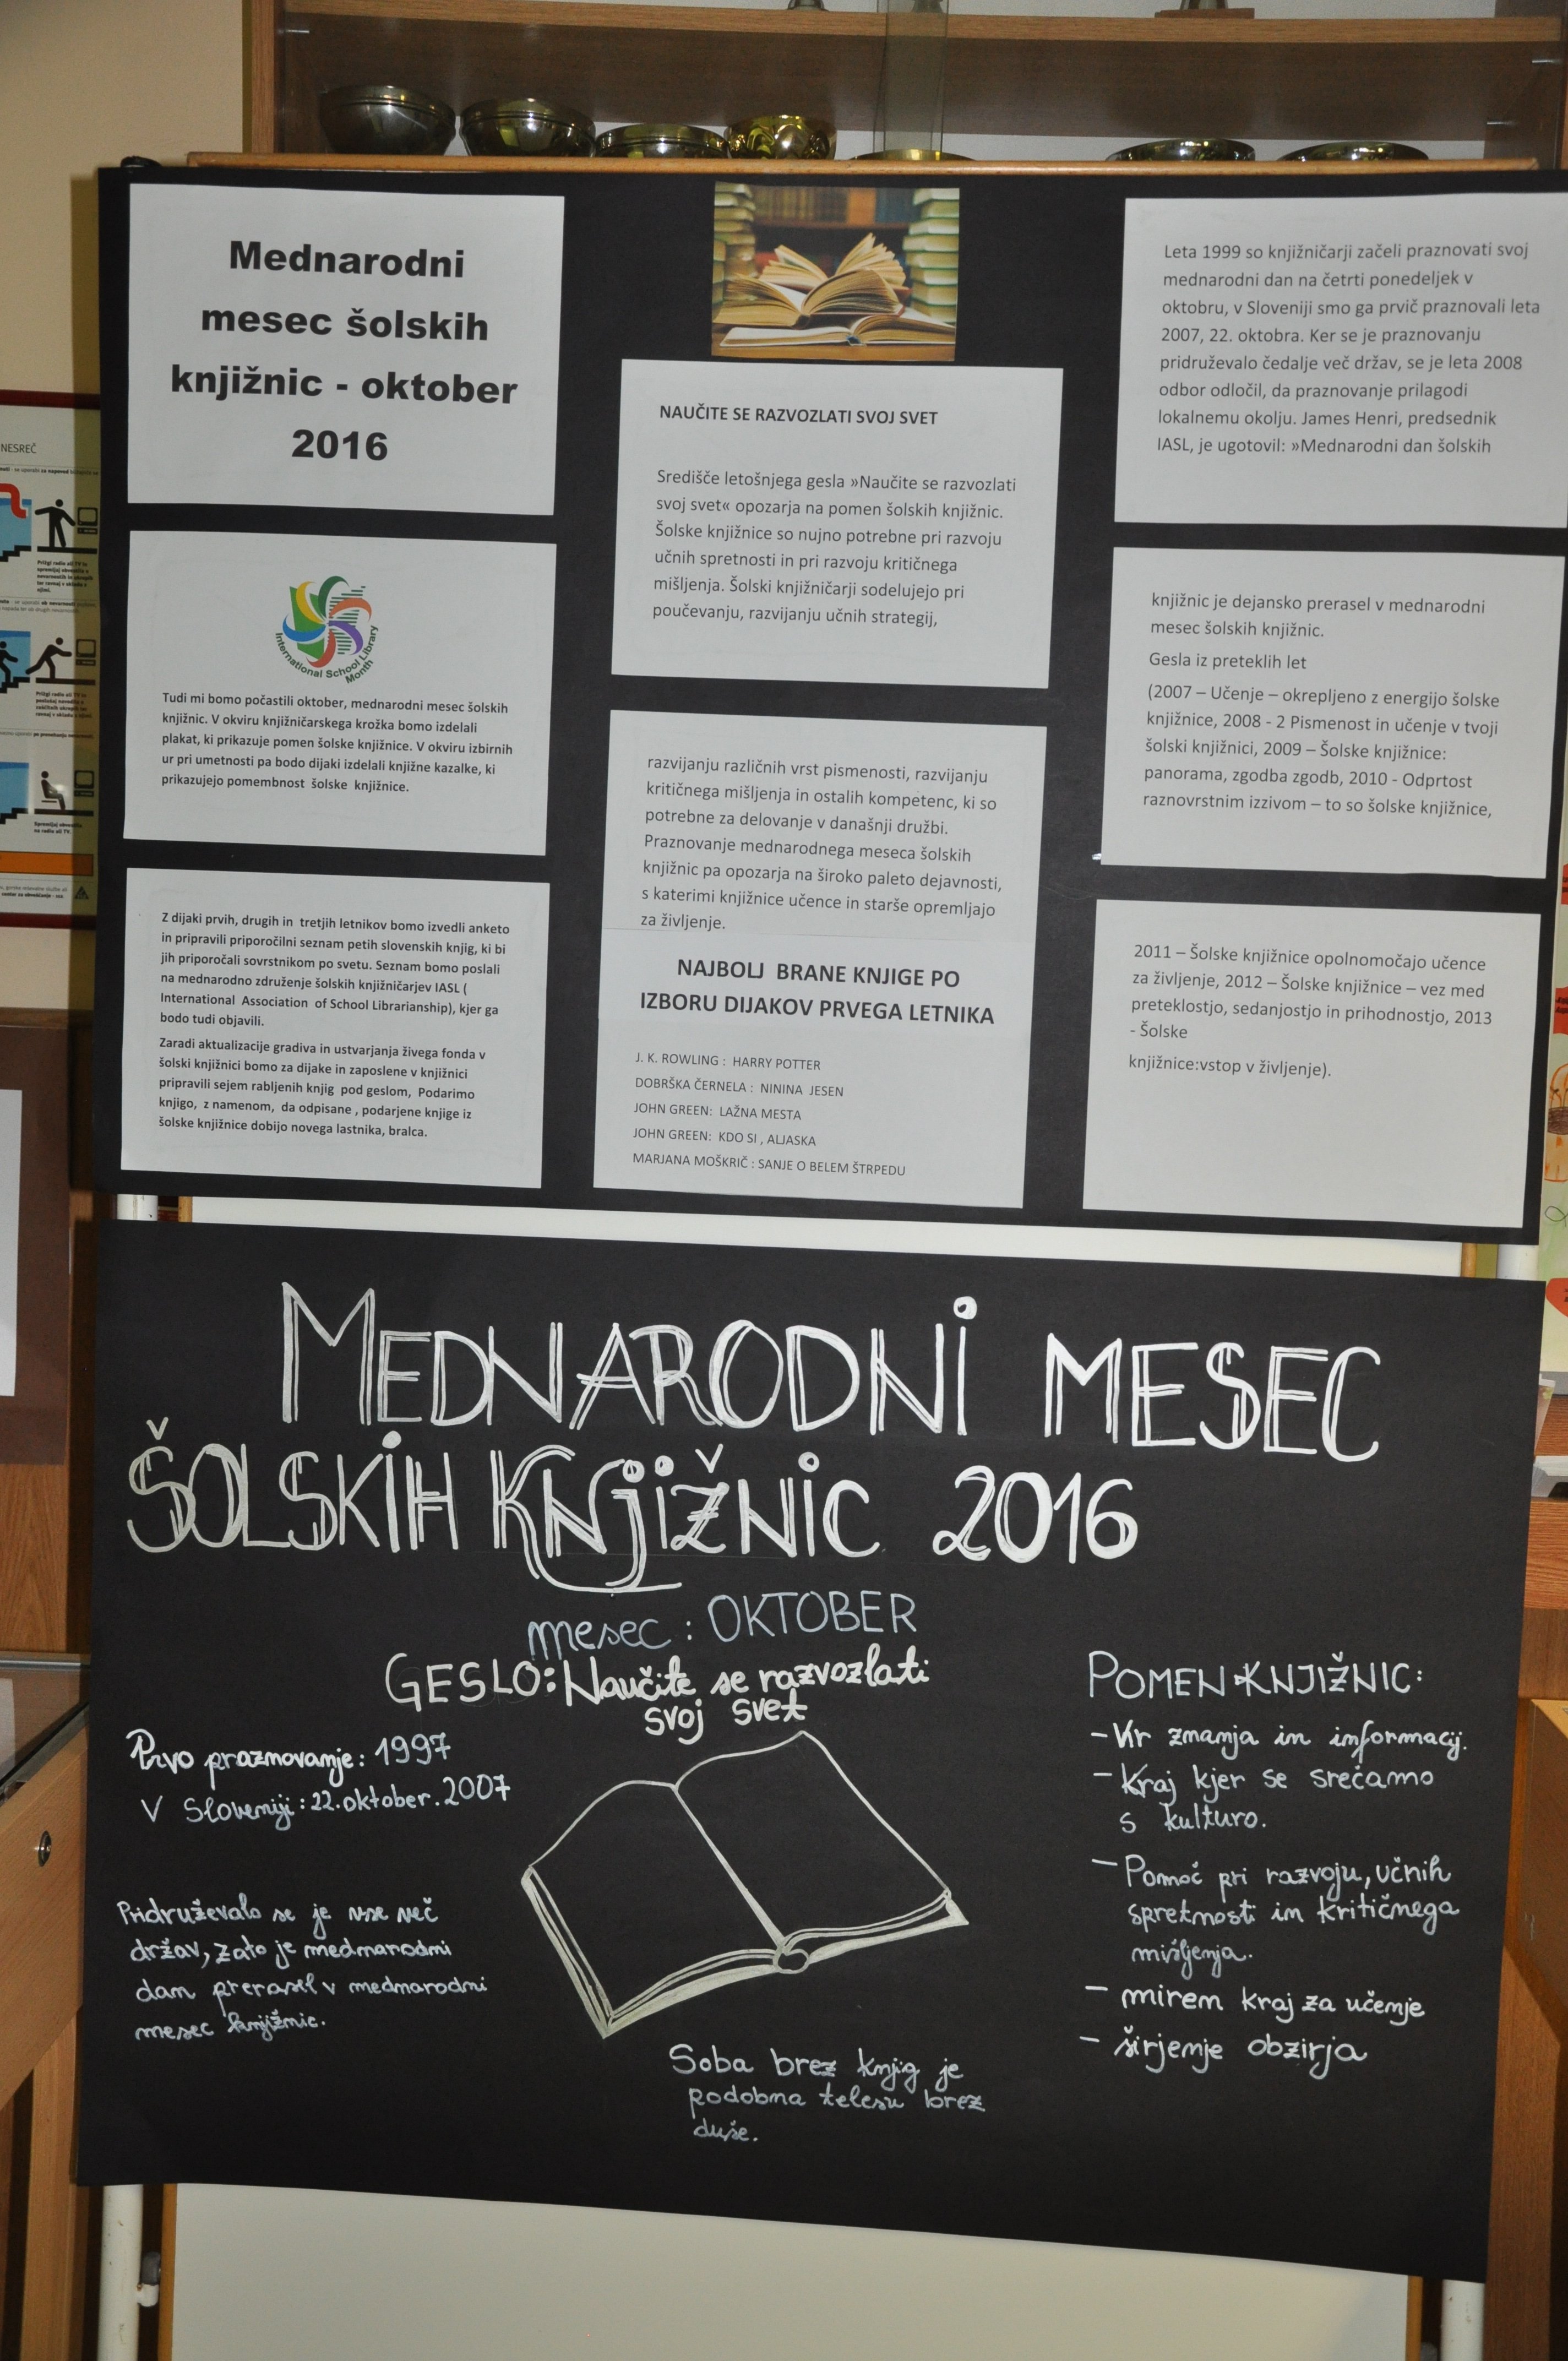 Mednarodni
mesec šolskih
knjižnic - oktober
2016
International School Library
Month
Tudi mi bomo počastili oktober, mednarodni mesec šolskih
knjižnic. V okviru knjižničarskega krožka bomo izdelali
plakat, ki prikazuje pomen šolske knjižnice. V okviru izbirnih
ur pri umetnosti pa bodo dijaki izdelali knjižne kazalke, ki
prikazujejo pomembnost šolske knjižnice.
Z dijaki prvih, drugih in tretjih letnikov bomo izvedli anketo
in pripravili priporočilni seznam petih slovenskih knjig, ki bi
jih priporočali sovrstnikom po svetu. Seznam bomo poslali
na mednarodno združenje šolskih knjižničarjev IASL (
International Association of School Librarianship), kjer ga
bodo tudi objavili.
Zaradi aktualizacije gradiva in ustvarjanja živega fonda v
šolski knjižnici bomo za dijake in zaposlene v knjižnici
pripravili sejem rabljenih knjig pod geslom, Podarimo
knjigo, z namenom, da odpisane , podarjene knjige iz
šolske knjižnice dobijo novega lastnika, bralca.
NAUČITE SE RAZVOZLATI SVOJ SVET
Središče letošnjega gesla »Naučite se razvozlati
svoj svet« opozarja na pomen šolskih knjižnic.
Šolske knjižnice so nujno potrebne pri razvoju
učnih spretnosti in pri razvoju kritičnega
mišljenja. Šolski knjižničarji sodelujejo pri
poučevanju, razvijanju učnih strategij,
razvijanju različnih vrst pismenosti, razvijanju
kritičnega mišljenja in ostalih kompetenc, ki so
potrebne za delovanje v današnji družbi.
Praznovanje mednarodnega meseca šolskih
knjižnic pa opozarja na široko paleto dejavnosti,
s katerimi knjižnice učence in starše opremljajo
za življenje.
NAJBOLJ BRANE KNJIGE PO
IZBORU DIJAKOV PRVEGA LETNIKA
J. K. ROWLING : HARRY POTTER
DOBRŠKA ČERNELA : NININA JESEN
JOHN GREEN: LAŽNA MESTA
JOHN GREEN: KDO SI , ALJASKA
MARJANA MOŠKRIČ : SANJE O BELEM ŠTRPEDU
Leta 1999 so knjižničarji začeli praznovati svoj
mednarodni dan na četrti ponedeljek v
oktobru, v Sloveniji smo ga prvič praznovali leta
2007, 22. oktobra. Ker se je praznovanju
pridruževalo čedalje več držav, se je leta 2008
odbor odločil, da praznovanje prilagodi
lokalnemu okolju. James Henri, predsednik
IASL, je ugotovil: »Mednarodni dan šolskih
knjižnic je dejansko prerasel v mednarodni
mesec šolskih knjižnic.
Gesla iz preteklih let
(2007 – Učenje – okrepljeno z energijo šolske
knjižnice, 2008 - 2 Pismenost in učenje v tvoji
šolski knjižnici, 2009 – Šolske knjižnice:
panorama, zgodba zgodb, 2010 - Odprtost
raznovrstnim izzivom – to so šolske knjižnice,
2011 – Šolske knjižnice opolnomočajo učence
za življenje, 2012 – Šolske knjižnice – vez med
preteklostjo, sedanjostjo in prihodnostjo, 2013
- Šolske
knjižnice:vstop v življenje).
NESREČ
MEDNARODNI MESEC
ŠOLSKIH KNJIŽNIC 2016
mesec : OKTOBER
GESLO: Naučite se razvozlati
svoj svet
Prvo praznovanje: 1997
V Sloveniji: 22.oktober.2007
Pridruževalo se je vse več
držav, zato je mednarodni
dan prerasel v mednarodni
mesec knjižnic.
Soba brez knjig je
podobna telesu brez
duše.
POMEN KNJIŽNIC:
- Vir znanja in informacij.
- Kraj kjer se srečamo
s kulturo.
- Pomoč pri razvoju, učnih
spretnosti in kritičnega
mišljenja.
- miren kraj za učenje
- širjenje obzirja